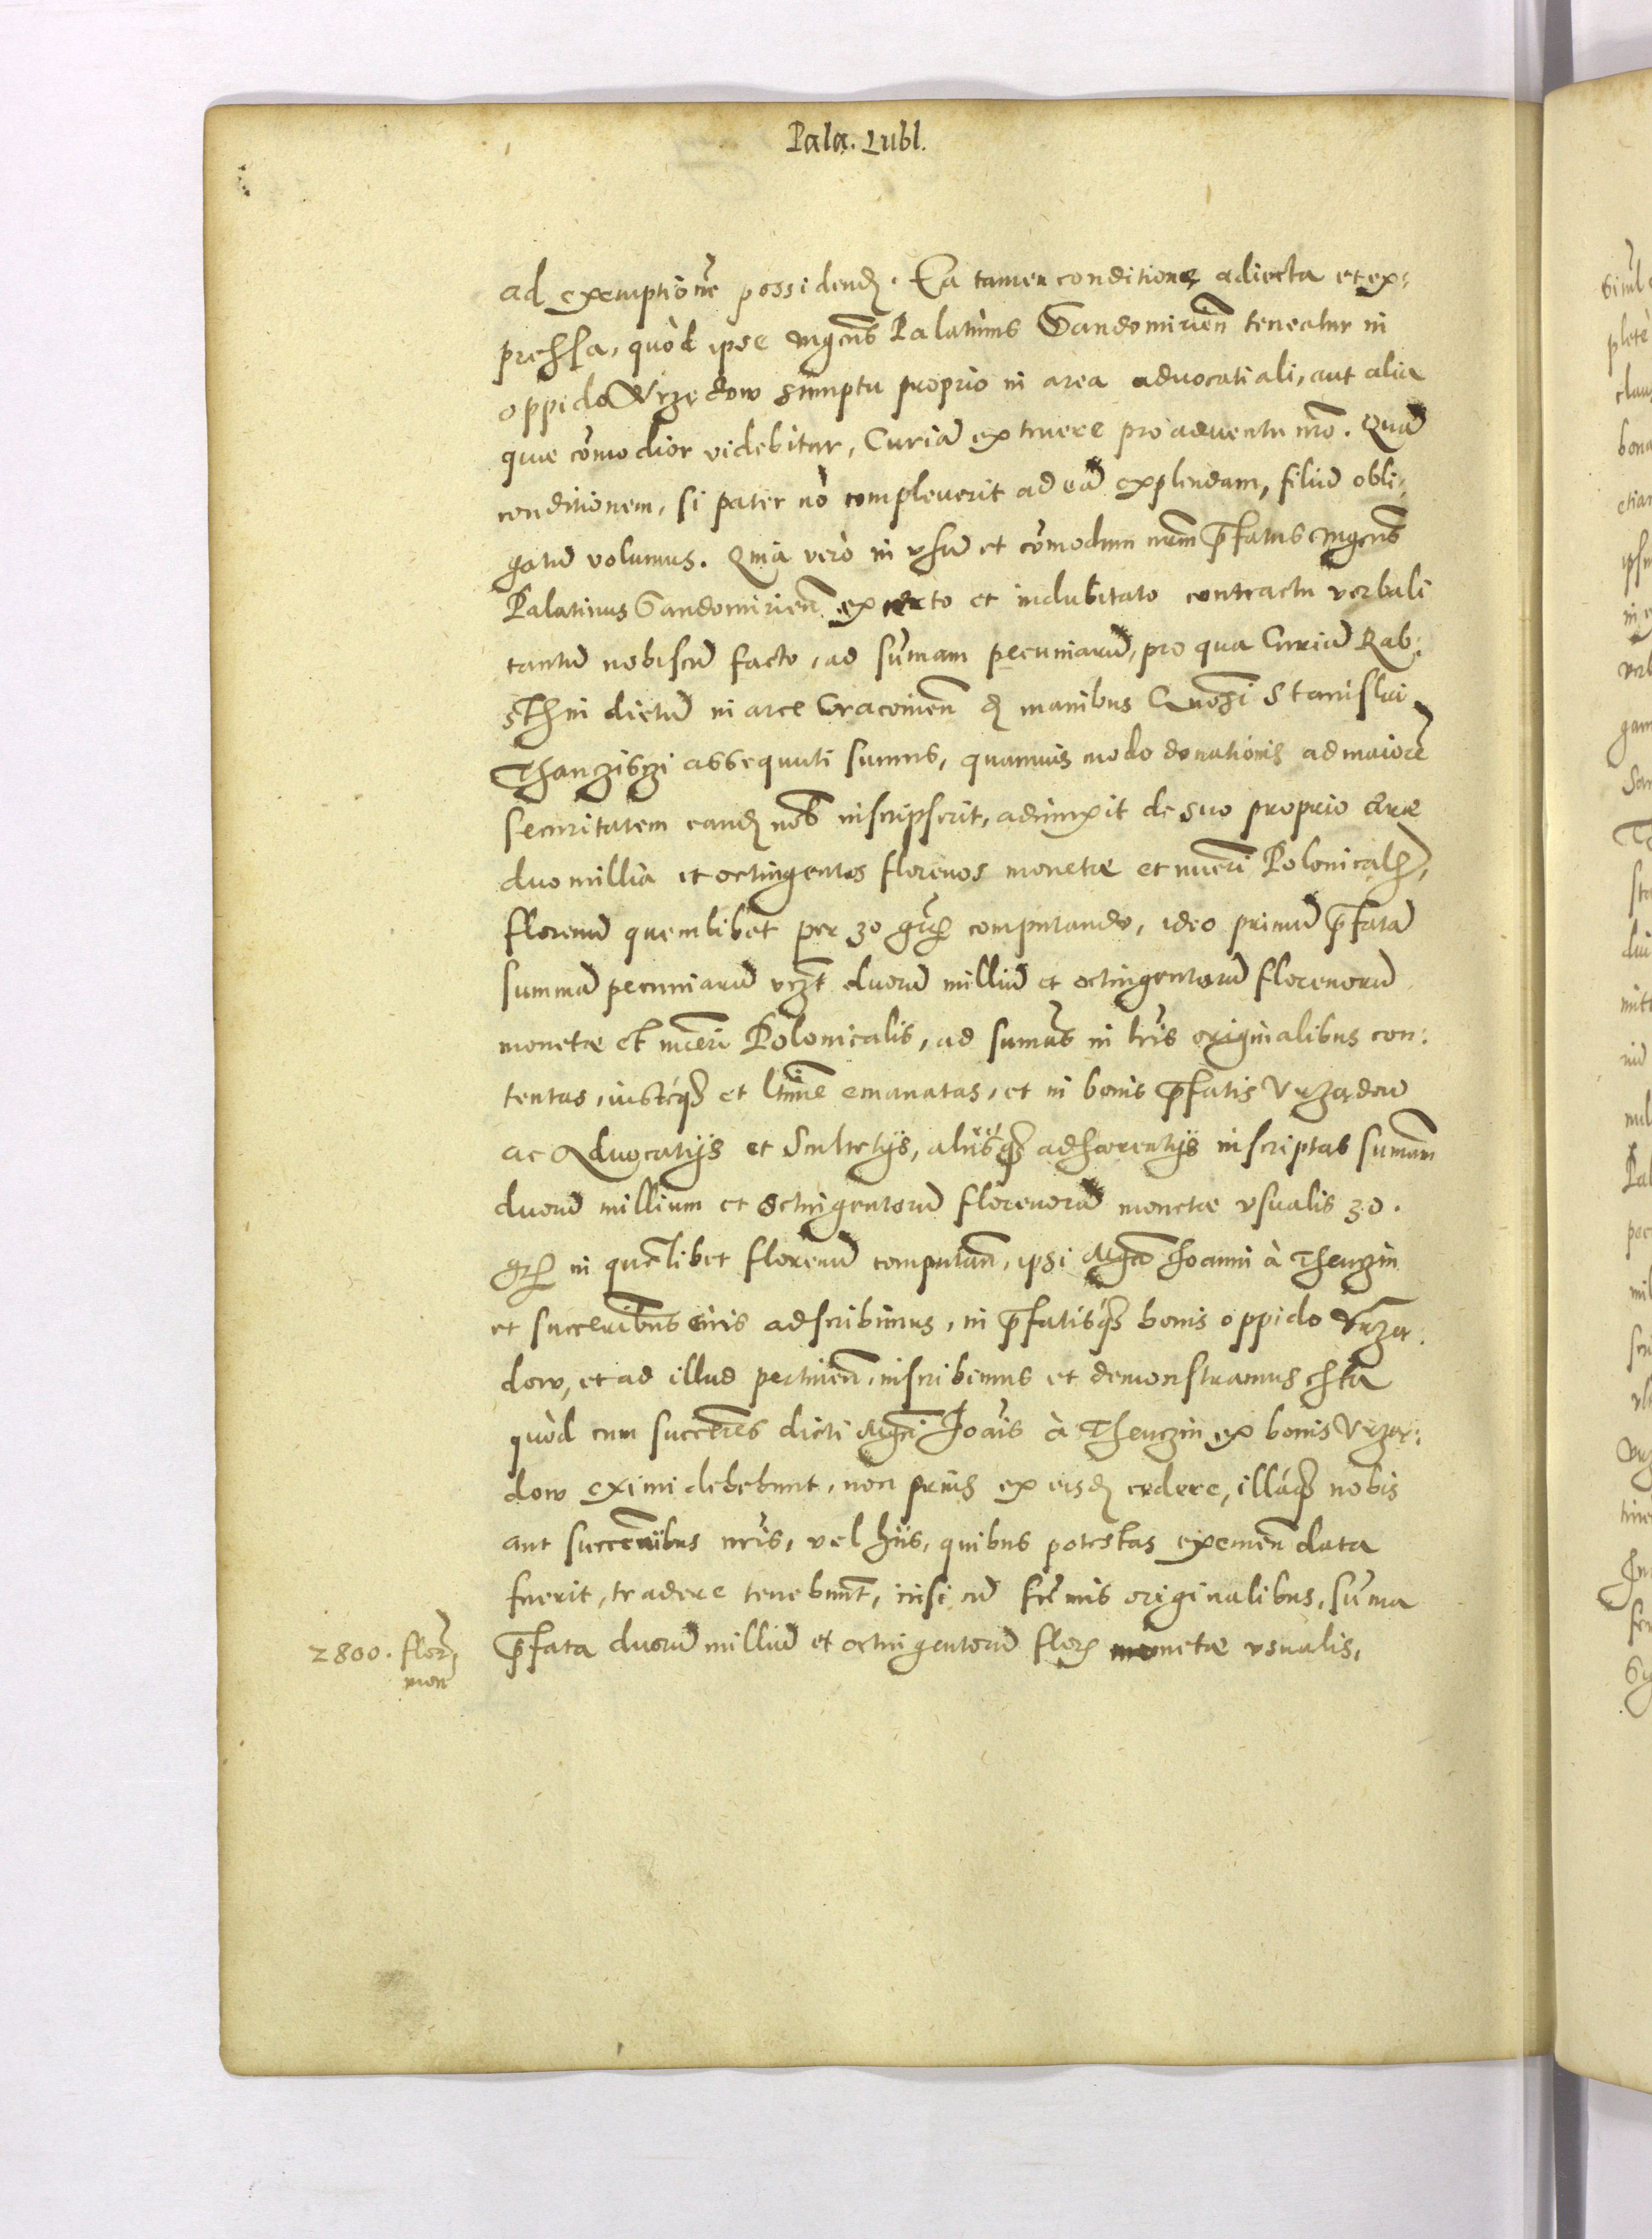 Pala. Lubl.
ad exemptionē possidend. Ea tamen conditione adiecta et ex:
pressa, quòd ipse mgcus Palatinus Sandomirien̄ teneatur in
oppido Vrzędow sumptu proprio in area aduocatiali, aut alia
quae cōmodior videbitur, Curiā extruere pro aduentu nr̄o. Quā
conditionem, si pater nō compleuerit ad eā explendam, filiū obli:
gatū volumus. Quia verò in vsū et cōmodum nrūm p̄fatus mgcus
Palatinus Sandomirien̄ ex certo et indubitato contractu verbali
tantū nobiscū facto, ad sum̄am pecuniarū, pro qua Curiā Rab:
sthin dictā in arce Cracouien̄ d manibus Gnosi Stanislai
assequuti sumus, quamuis modo donationis ad maiorē
securitatem eand nob̄ inscripserit, adiunxit de suo proprio aere
duo millia et octingentos florenos monetae et nūeri Polonical,
florenū quemlibet per 30 gr̄ computando, ideo primū p̄fatā
summā pecuniarū vzt duorū milliū et octingentorū florenorū
monetae et nūeri Polonicalis, ad sum̄as in lr̄is originalibus con:
tentas, iustéq et ltime emanatas, et in bonis p̄fatis Vrzędow
ac Aduocatijs et Scultetijs, alijsq adhaerentijs inscriptas sum̄am
duorū millium et octingentorū florenorū monetae vsualis 30.
gr̄ in quēlibet florenū computan̄, ipsi Mgco Joanni à Thenczin
et succeribus eius adscribimus, in p̄fatisq bonis oppido Vrzę:
dow, et ad illud pertinen̄, inscribimus et demonstramus
quòd cum succeres dicti Mgci Joāis à Thenczin ex bonis Vrzę:
dow eximi debebunt, non prius ex eisd cedere, illáq nobis
aut succeribus nr̄is, vel hijs, quibus potestas exemen̄ data
fuerit, tradere tenebunt, nisi cū originalibus, sum̄a
p̄fata duorū milliū et octingentorū flor monetae vsualis,
2800. flor
mon̄